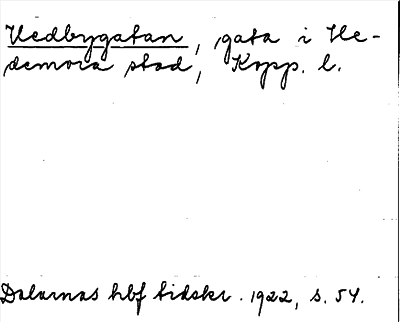 Hedbygatan, gata i He-
demora stad, Kopp. l.
Dalarnas hbf tidskr. 1922, s. 54.